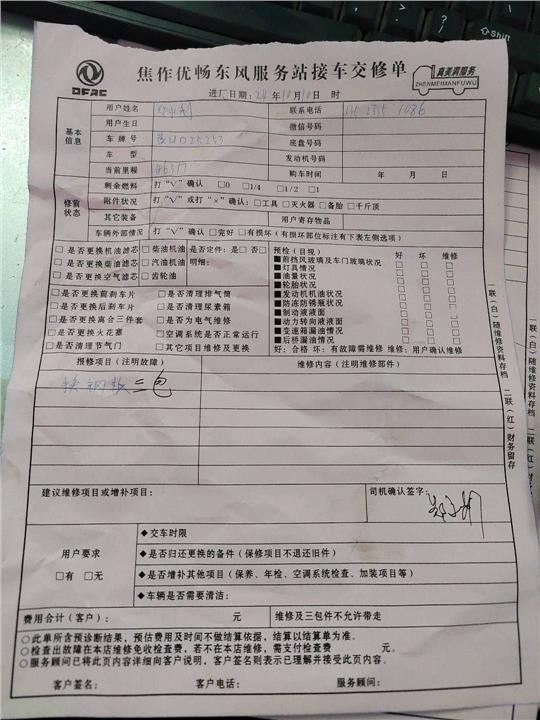 DFAC
焦作优畅东风服务站接车交修单
真美满服务
ZHENMEIMANFUWU
进厂日期：24 年 10 月 10 日 时
基本信息
用户姓名 联系电话 1086
用户生日 微信号码
车牌号 底盘号码
车型 发动机号码
当前里程 购车时间 年 月 日
修前状态
剩余燃料 打“√”确认 □0 □1/4 □1/2 □1
附件状况 打“√”或打“×”确认：□工具 □灭火器 □备胎 □千斤顶
其它装备 用户寄存物品
车辆外部情况 打“√”确认 □完好 □有损坏（有损坏部位标注有下表左侧选项）
□是否更换机油滤芯 □柴油机油 是否定件：是□否□
□是否更换柴油滤芯 □汽油机油 明细：
□是否更换空气滤芯 □齿轮油
□是否更换前刹车片 □是否清理排气筒
□是否更换后刹车片 □是否清理尿素箱
□是否更换离合三件套 □是否为电气维修
□是否更换火花塞 □空调系统是否正常运行
□是否清理节气门 □其它项目维修及更换
预检（目视） 好 坏 维修
■前挡风玻璃及车门玻璃状况 □ □ □
■灯具情况 □ □ □
■油量状况 □ □ □
■轮胎状况 □ □ □
■发动机机油状况 □ □ □
■防冻防锈液状况 □ □ □
■制动液液面 □ □ □
■动力转向液液面 □ □ □
■变速箱漏油情况 □ □ □
■后桥漏油情况 □ □ □
好：合格 坏：有故障需维修 维修：用户确认维修
报修项目（注明故障） 维修内容（注明维修部件）
三包
建议维修项目或增补项目： 司机确认签字：
用户要求
□有 □无
◆交车时限
◆是否归还更换的备件（保修项目不退还旧件）
◆是否增补其他项目（保养、年检、空调系统检查、加装项目等）
◆车辆是否需要清洁：
费用合计（客户）： 元 维修及三包件不允许带走
○此单所含预诊断结果，预估费用及时间不做结算依据，结算以结算单为准。
○检查出故障在本店维修免收检查费，若不在本店维修，需支付检查费 元。
○服务顾问已将此页内容详细向客户说明，客户签名则表示已理解并接受此页内容。
客户签名： 客户电话： 服务顾问：
一联（白）随维修资料存档 二联（红）财务留存
一联（白）随维修资料存档 二联（红）
shift